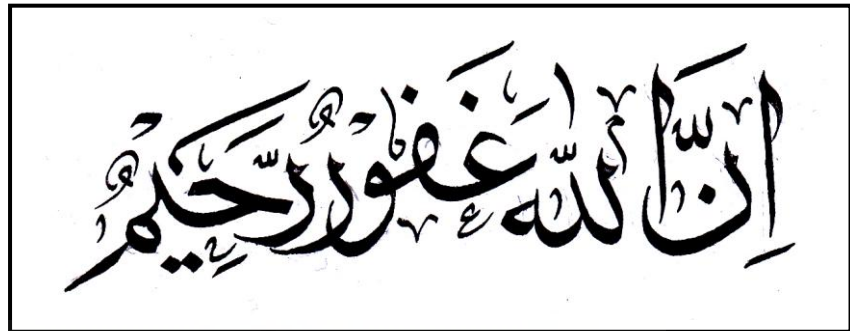 اِنَّ اللّٰهَ غَفُوْرٌ رَّحِيْمٌ